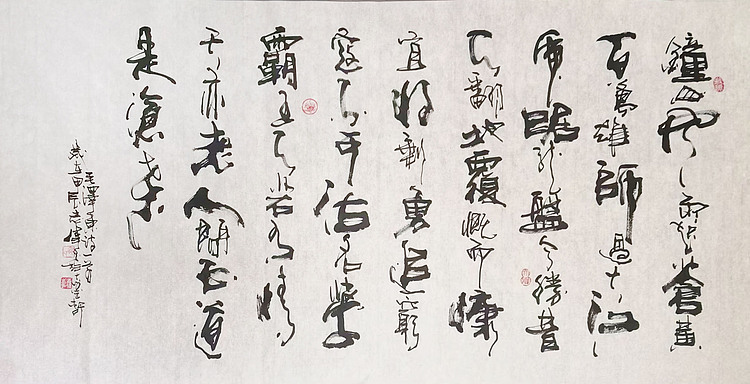 鐘山风雨起蒼黄
百萬雄師過大江
虎踞龍盤今勝昔
天翻地覆慨而慷
宜将剩勇追窮
寇不可沽名學
霸王天若有情
天亦老人間正道
是滄桑
毛澤東詩一首